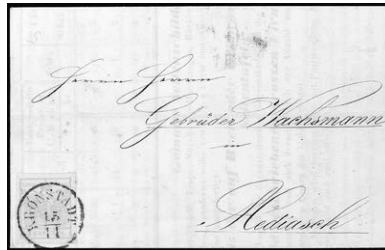 Herrn Herrn
Gebrüder Wachsmann
in
Mediasch
KRONSTADT
15
11